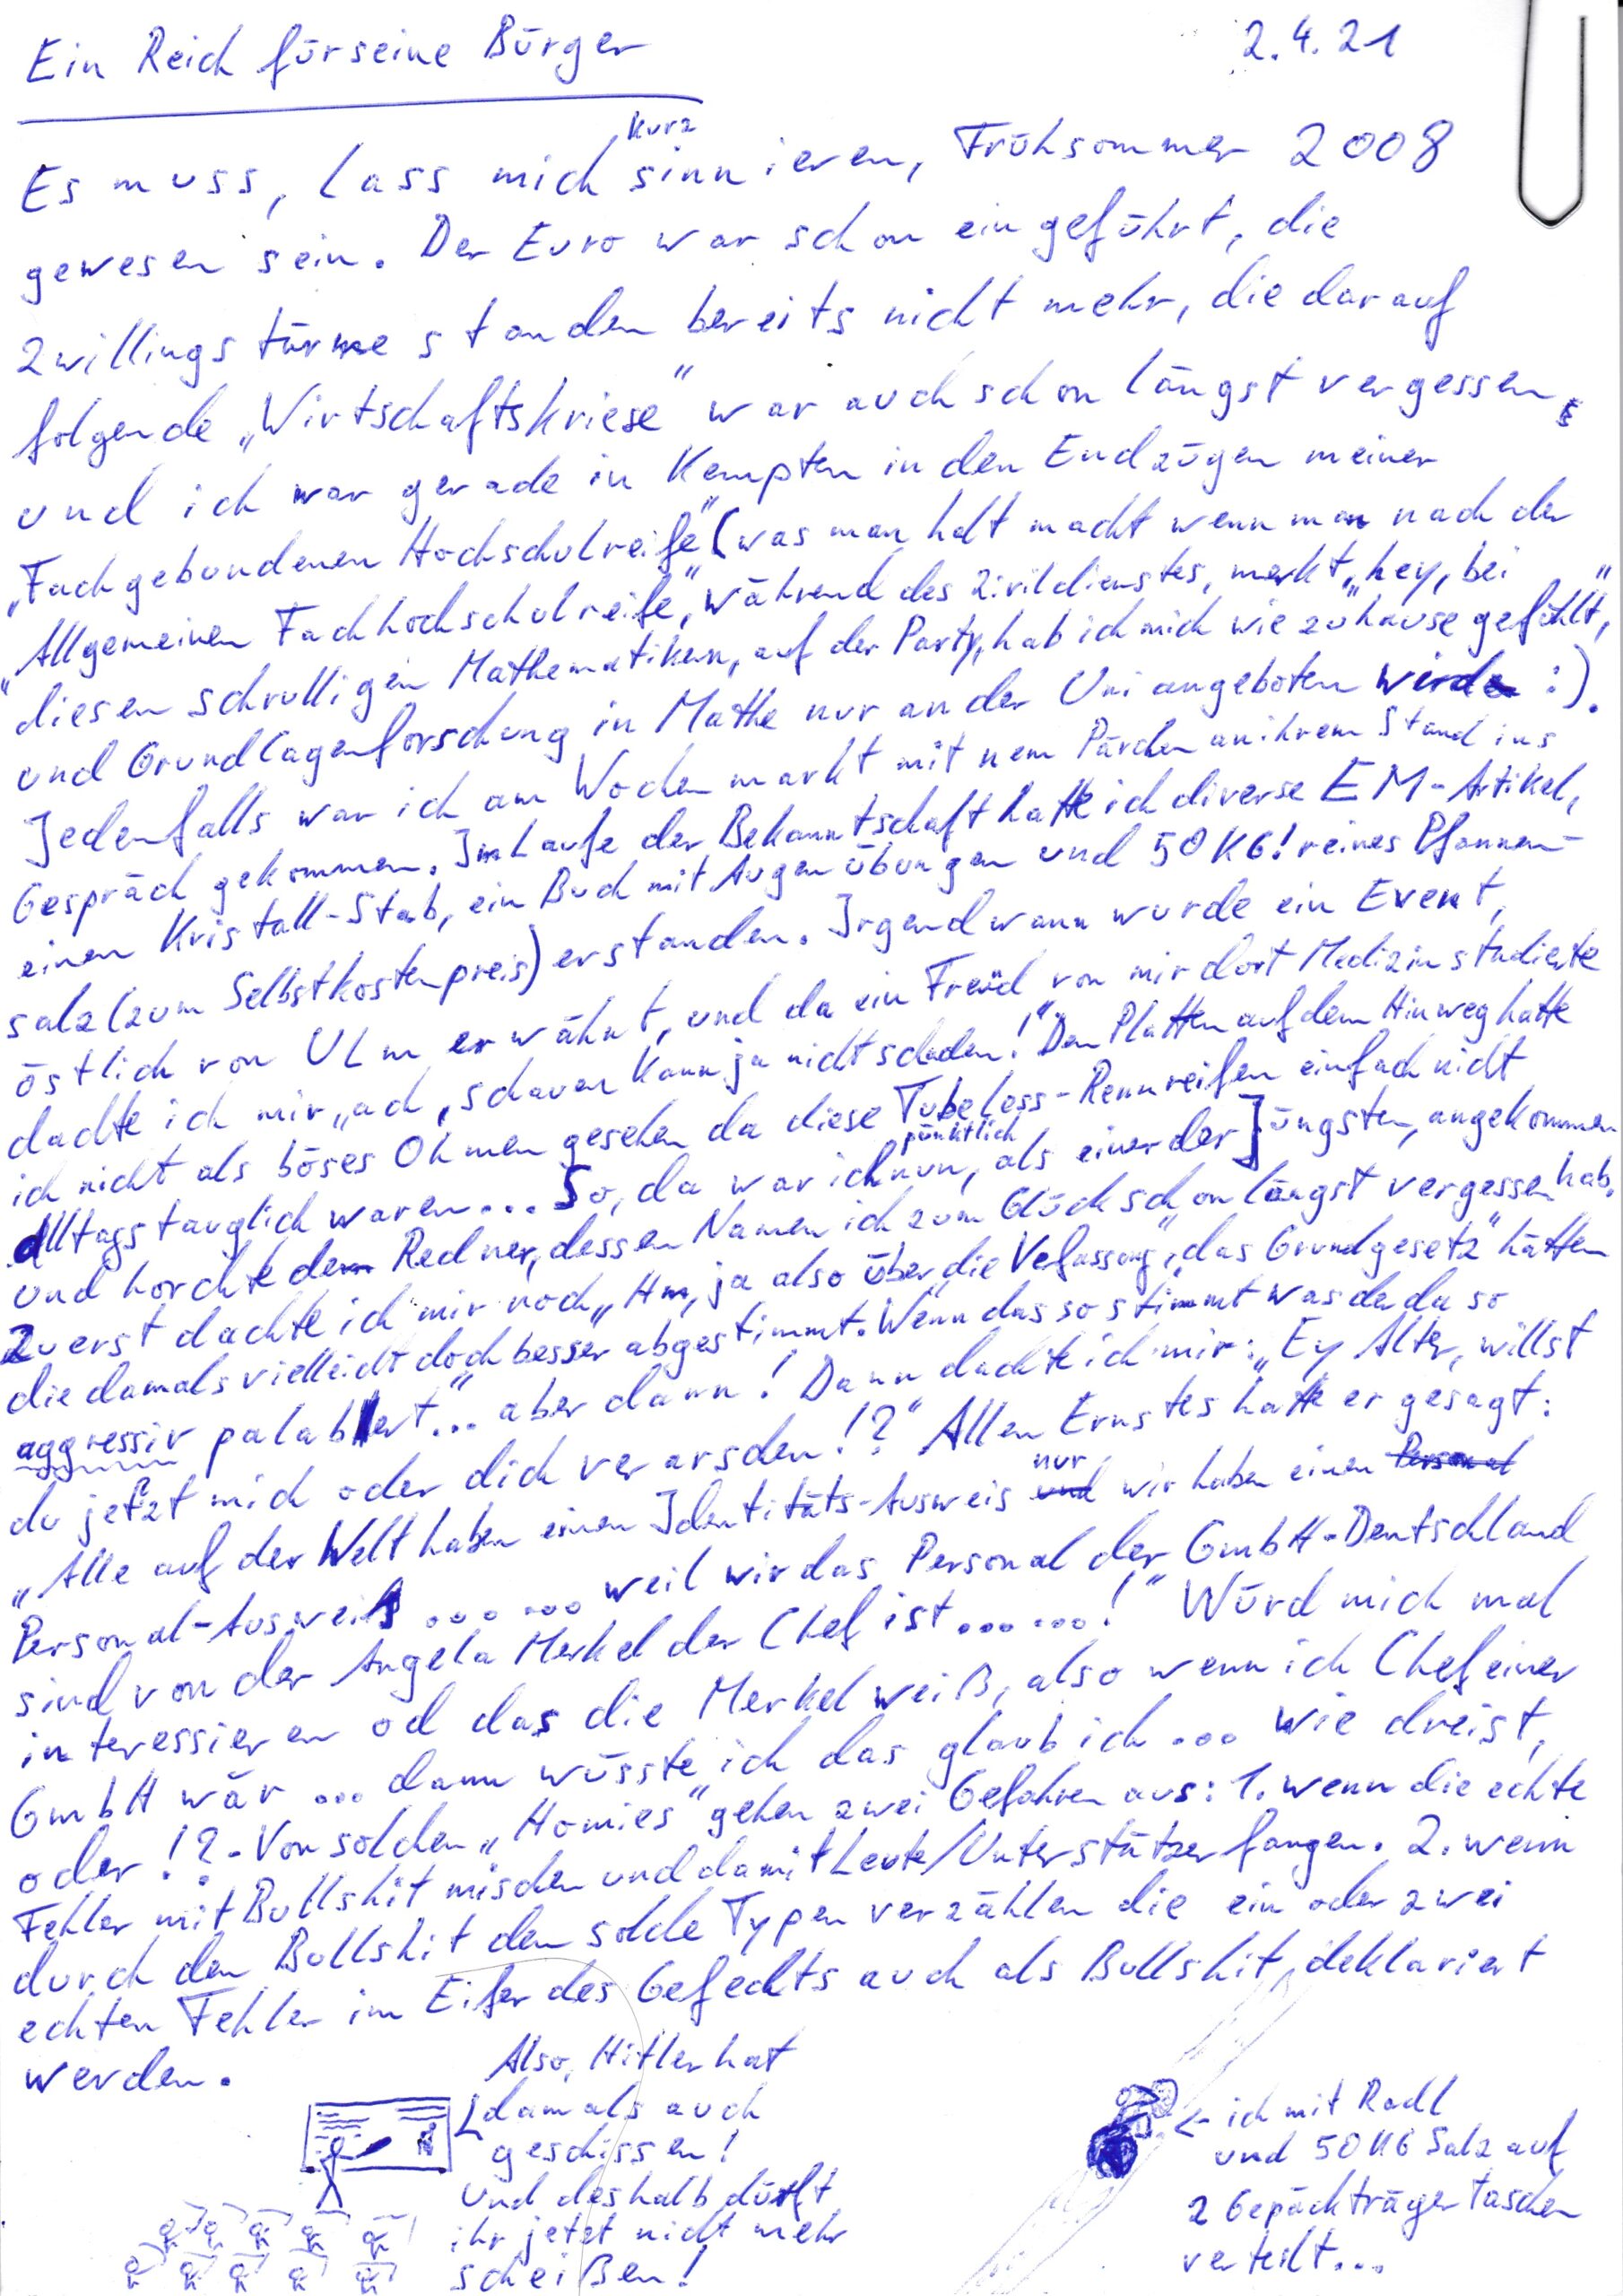 Ein Reich für seine Bürger
2.4.21
Es muss, lass mich kurz sinnieren, Frühsommer 2008
gewesen sein. Der Euro war schon eingeführt, die
Zwillingstürme standen bereits nicht mehr, die darauf
folgende „Wirtschaftskriese" war auch schon längst vergessen,
und ich war gerade in Kempten in den Endzügen meiner
„Fachgebundenen Hochschulreife" (was man halt macht wenn man nach der
„Allgemeinen Fachhochschulreife", während des Zivildienstes, merkt „hey, bei
diesen schrulligen Mathematikern, auf der Party, hab ich mich wie zuhause gefühlt",
und Grundlagenforschung in Mathe nur an der Uni angeboten wird :).
Jedenfalls war ich am Wochenmarkt mit nem Pärchen an ihrem Stand ins
Gespräch gekommen. Im Laufe der Bekanntschaft hatte ich diverse EM-Artikel,
einen Kristall-Stab, ein Buch mit Augenübungen und 50KG! reines Pfannen-
salz (zum Selbstkostenpreis) erstanden. Irgendwann wurde ein Event,
östlich von Ulm erwähnt, und da ein Freud von mir dort Medizin studierte
dachte ich mir „ach, schauen kann ja nicht schaden!" Den Platten auf dem Hinweg hatte
ich nicht als böses Ohmen gesehen da diese Tubeless-Rennreifen einfach nicht
alltagstauglich waren... So, da war ich nun, pünktlich als einer der Jüngsten, angekommen
und horchte dem Redner, dessen Namen ich zum Glück schon längst vergessen hab.
Zuerst dachte ich mir noch „Hm, ja also über die Vefassung", „das Grundgesetz" hätten
die damals vielleicht doch besser abgestimmt. Wenn das so stimmt was der da so
aggressiv palabert"... aber dann! Dann dachte ich mir: „Ey Alter, willst
du jetzt mich oder dich verarschen!?" Allen Ernstes hatte er gesagt:
„Alle auf der Welt haben einen Identitäts-Ausweis und nur wir haben einen Personal
Personal-Ausweis ...... weil wir das Personal der GmbH-Deutschland
sind von der Angela Merkel der Chef ist ......!" Würd mich mal
interessieren od das die Merkel weiß, also wenn ich Chef einer
GmbH wär ... dann wüsste ich das glaub ich ... wie dreist,
oder!? - Von solchen „Homies" gehen zwei Gefahren aus: 1. wenn die echte
Fehler mit Bullshit mischen und damit Leute/Unterstützer fangen. 2. wenn
durch den Bullshit den solche Typen verzählen die ein oder zwei
echten Fehler im Eifer des Gefechts auch als Bullshit deklariert
werden.
Also, Hitler hat
damals auch
geschissen!
Und deshalb dürft
ihr jetzt nicht mehr
scheißen!
<- ich mit Radl
und 50KG Salz auf
2 Gepäckträger Taschen
verteilt...